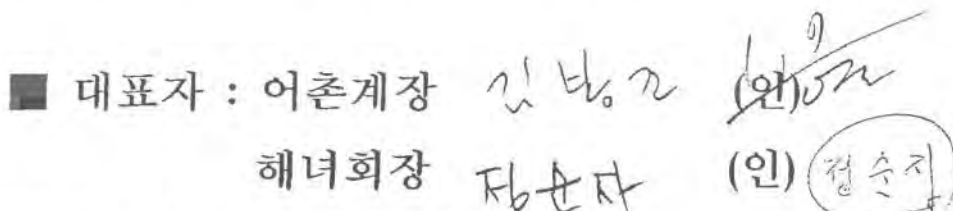 ■ 대표자 : 어촌계장 (인)
해녀회장 정순자 (인) 정순자